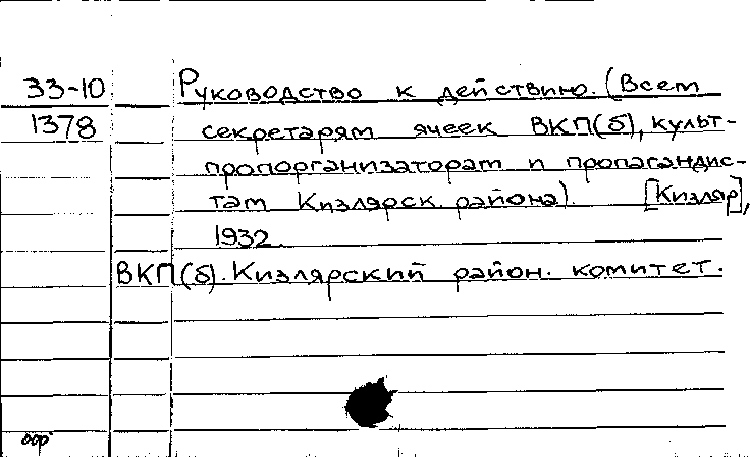 33-10 Руководство к действию. (Всем
1378 секретарям ячеек ВКП(б), культ-
пропорганизаторам и пропагандис-
там Кизлярск. района). [Кизляр],
1932.
ВКП(б). Кизлярский район. комитет.
оор